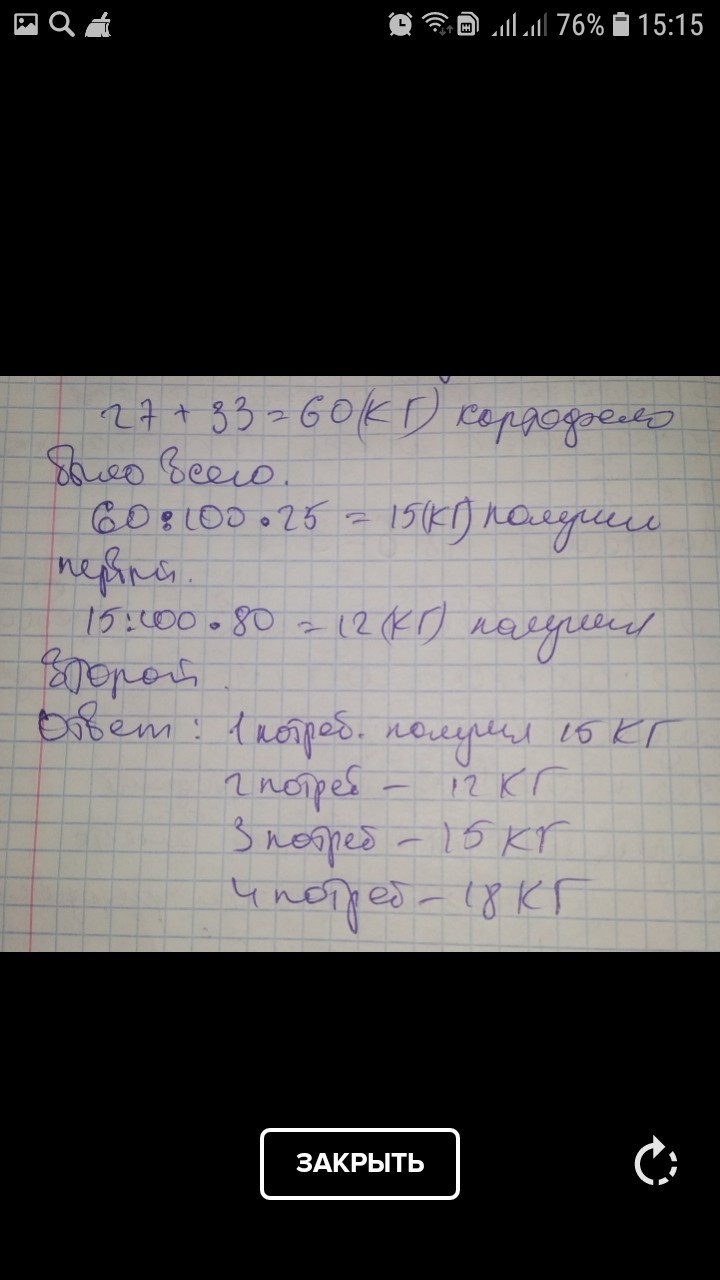 76% 15:15
27 + 33 = 60 (КГ) картофеля
было всего.
60:100•25 = 15(КГ) получил
первый.
15:100•80 = 12 (КГ) получил
второй.
Ответ: 1 потреб. получил 15 КГ
2 потреб - 12 КГ
3 потреб - 15 КГ
4 потреб - 18 КГ
ЗАКРЫТЬ